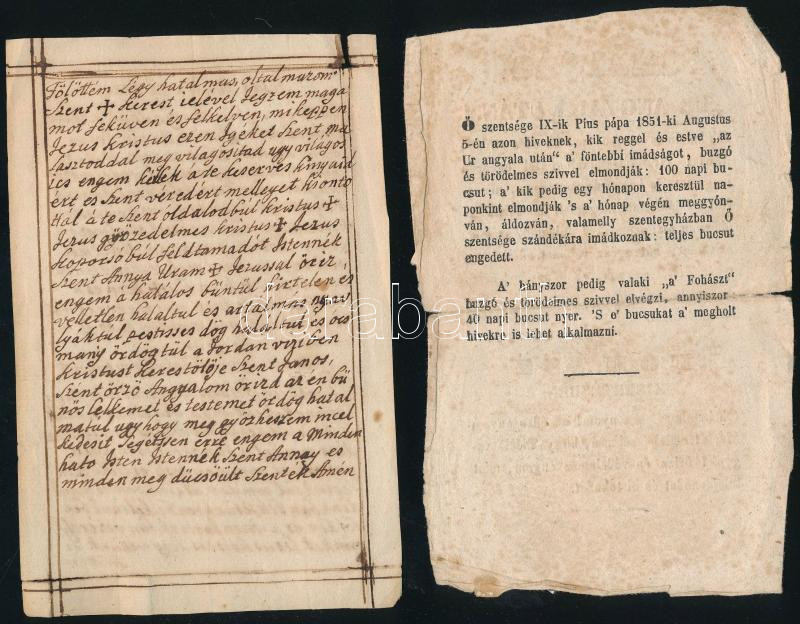 Fölöttem Légy hatalmas, oltalmazom
Szent + Kerest ielével Jegzem maga
mot feküven és felkelven, mikeppen
Jezus Kristus ezen Igéket Szent ma
lasztoddal meg világositad ugy világos
ics engem kérlek a te keserves kinyaid
ért és Szent veredért mellyet kionto
ttál á te Szent oldalodbúl kristus +
Jezus győzedelmes kristus + Jezus
Koporsó búl feldtamadot Istennék
Szent Annya Uram + Jezussal őriz
engem á halálos büntül hirtelen és
velletlen haláltul és artalmas nyava
lyáktul pestisses dög haláltul, és ocs
many ördögtül a Jordan vizib‌en
kristust Kerestölöje Szent János,
Szént örző Angyalom őrizd az én bü
nös lelkemet és testemet ördög hatal
matul ugy hogy meg győzhessem incel
kedesit Segétjsen erre engem a Minden
hato Isten Istennék Szent Annay es
minden meg dücsöült Szenték Amén
Ő szentsége IX-ik Pius pápa 1851-ki Augustus
5-én azon hiveknek, kik reggel és estve „az
Ur angyala után“ a’ föntebbi imádságot, buzgó
és törödelmes szivvel elmondják: 100 napi bu-
csut; a’ kik pedig egy hónapon keresztül na-
ponkint elmondják ’s a’ hónap végén meggyón-
ván, áldozván, valamelly szentegyházban Ő
szentsége szándékára imádkoznak: teljes bucsut
engedett.
A’ hányszor pedig valaki „a’ Fohászt“
buzgó és törödelmes szivvel elvégzi, annyiszor
40 napi bucsut nyer. ’S e’ bucsukat a’ megholt
hivekre is lehet alkalmazni.